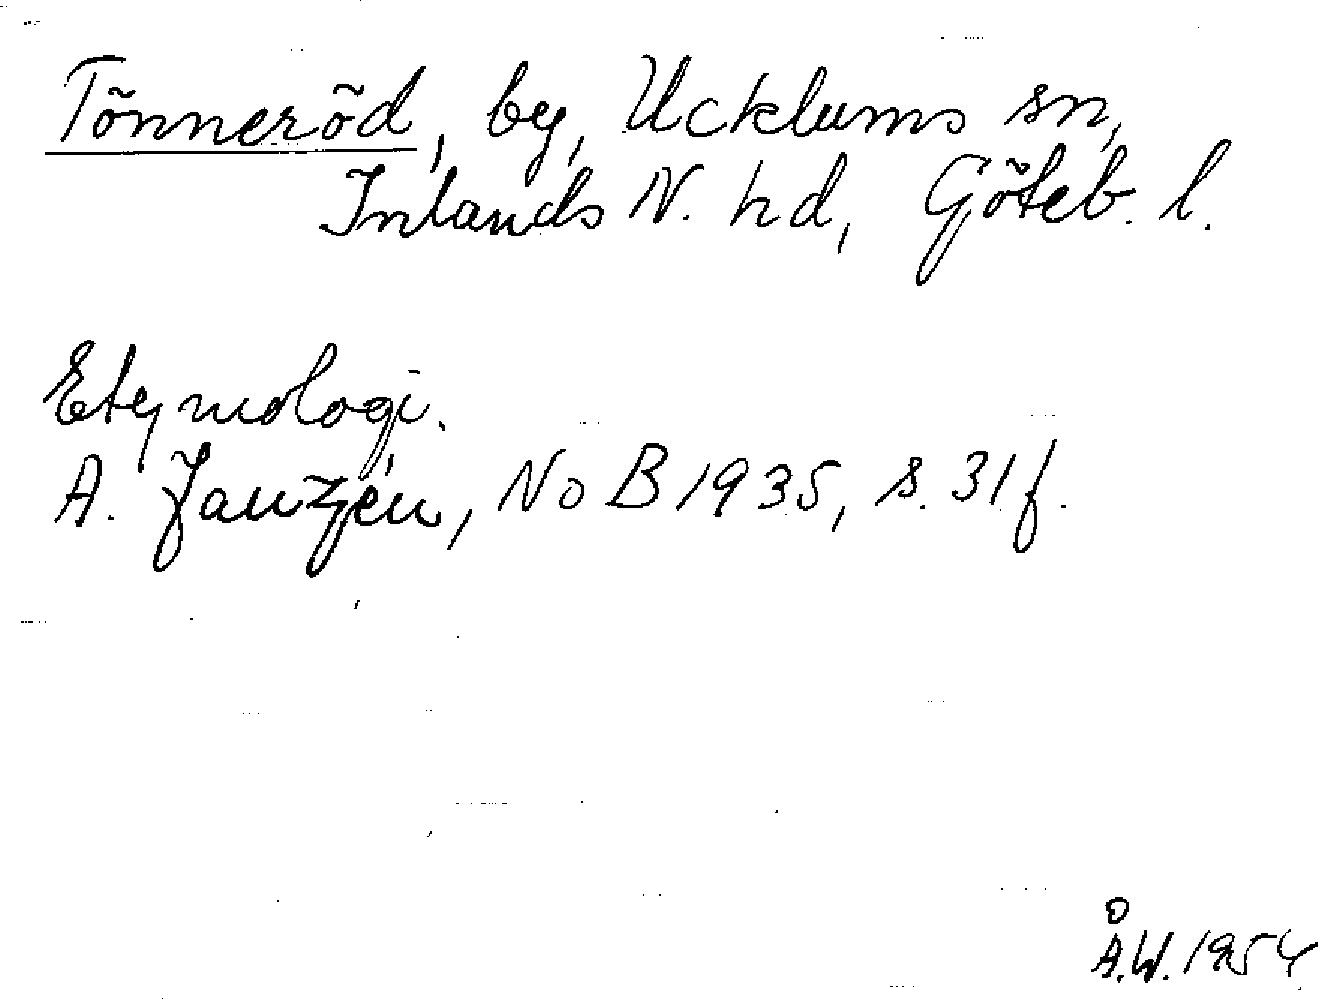 Tõnnerõd, by, Ucklums sn,
Inlands N. hd, Gõteb. l.
Etymologi.
A. Janzén, NoB 1935, s. 31 f.
Å.W. 1954